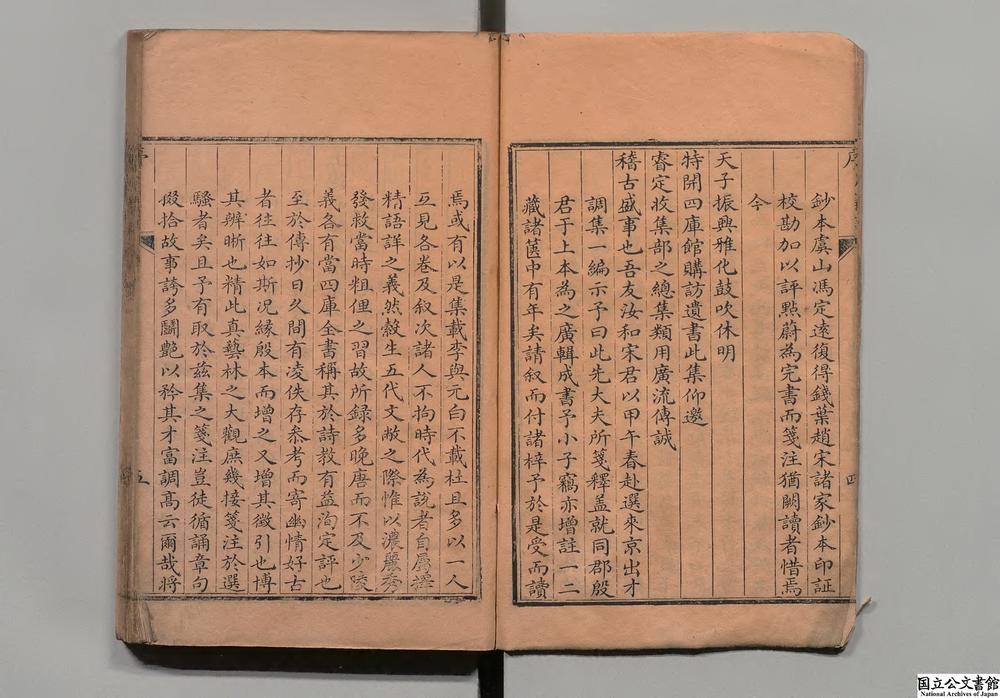 鈔本虞山馮定遠復得錢葉趙宋諸家鈔本印証
校勘加以評點蔚為完書而箋注猶闕讀者惜焉
今
天子振興雅化鼓吹休明
特開四庫館購訪遺書此集仰邀
睿定收集部之總集類用廣流傳誠
稽古盛事也吾友汝和宋君以甲午春赴選來京出才
調集一編示予曰此先大夫所箋釋盖就同郡殷
君于上本為之廣輯成書予小子竊亦增註一二
藏諸篋中有年矣請叙而付諸梓予於是受而讀
焉或有以是集載李與元白不載杜且多以一人
互見各卷及叙次諸人不拘時代為說者自屬譯
精語詳之義然縠生五代文敝之際惟以濃麗秀
發救當時粗俚之習故所録多晚唐而不及少陵
義各有當四庫全書稱其於詩教有益洵定評也
至於傳抄日久間有凌佚存叅考而寄幽情好古
者往往如斯况縁殷本而增之又增其徵引也博
其辨晰也精此真藝林之大觀庶幾接箋注於選
騷者矣且予有取於茲集之箋注豈徒循誦章句
假拾故事誇多鬬艷以矜其才富調髙云爾哉將
序
四
五
国立公文書館
National Archives of Japan